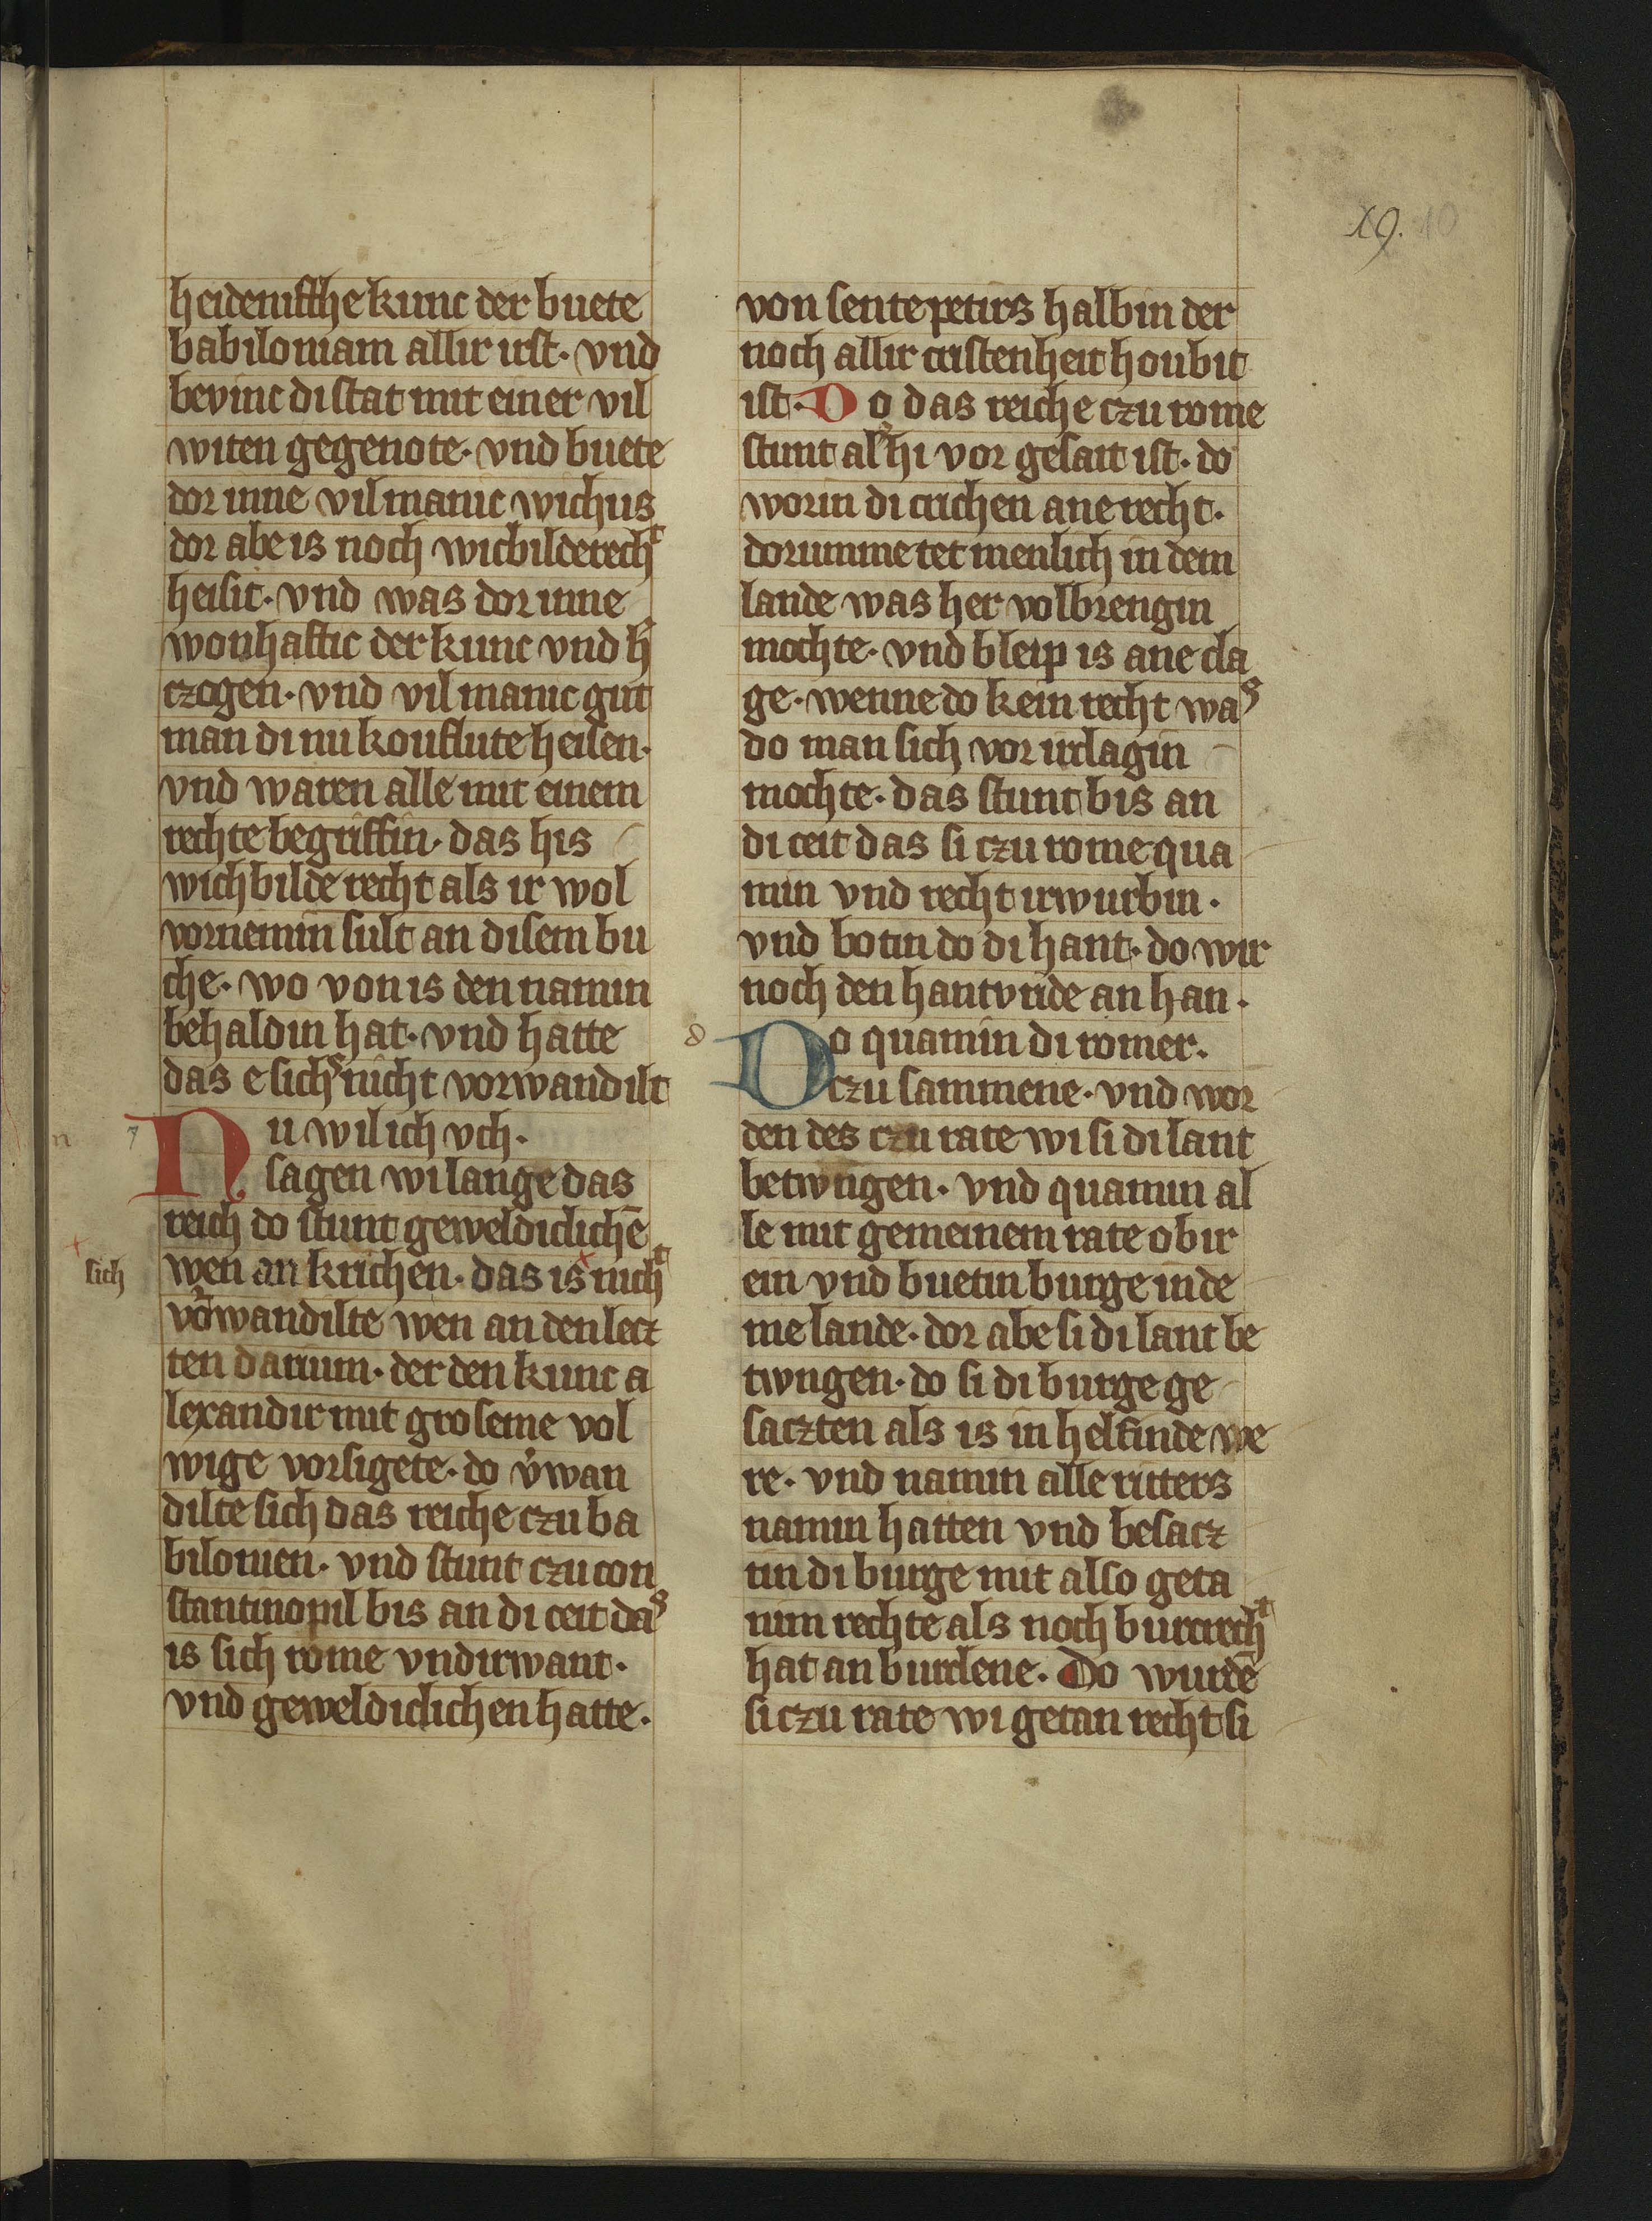 19. 10
heidenissche kunc der buete
babiloniam allir irst. vnd
bevinc di stat mit einer vil
witen gegenote. vnd buete
dor inne vil manic wichus
dor abe is noch wicbilderecht
heisit. vnd was dor inne
wonhaftic der kunc vnd h̄
czogen. vnd vil manic gut
man di nu kouflute heisen.
vnd waren alle mit einem
rechte begriffin. das his
wichbilde recht als ir wol
vornemin sult an disem bu
che. wo von is den namin
behaldin hat. vnd hatte
das e sichs nicht vorwandilt
n Nu wil ich vch.
sagen wi lange das
reich do stunt geweldiclichē
sich wen an krichen. das is nicht
vorwandilte wen an den lecz
ten darium. der den kunc a
lexandir mit groseme vol
wige vorsigete. do v̓wan
dilte sich das reiche czu ba
bilonien. vnd stunt czu con
stantinopil bis an di ceit das
is sich rome vndirwant.
vnd geweldiclichen hatte.
von sente petirs halbin der
noch allir cristenheit houbit
ist. Do das reiche czu rome
stunt als hi vor gesait ist. do
worin di crichen ane recht.
dorumme tet menlich in dem
lande was her volbrengin
mochte. vnd bleip is ane cla
ge. wenne do kein recht was
do man sich vor irclagin
mochte. das stunt bis an
di ceit das si czu rome qua
min vnd recht irwurbin.
vnd botin do di hant. do wir
noch den hantvride an han.
d Do quamin di romer.
czu sammene. vnd wor
den des czu rate wi si di lant
betwngen. vnd quamin al
le mit gemeinem rate obir
ein vnd buetin burge in de
me lande. dor abe si di lant be
twngen. do si di burge ge
saczten als is in helfinde we
re. vnd namin alle ritters
namin hatten vnd besacz
tin di burge mit also geta
nim rechte als noch burcrecht
hat an burclene. Do wurdē
si czu rate wi getan recht si